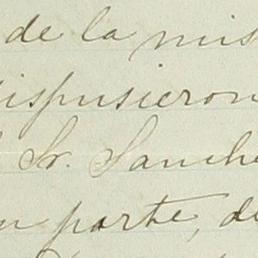 de la mis
dispusieron
Sr. Sanche
parte, de